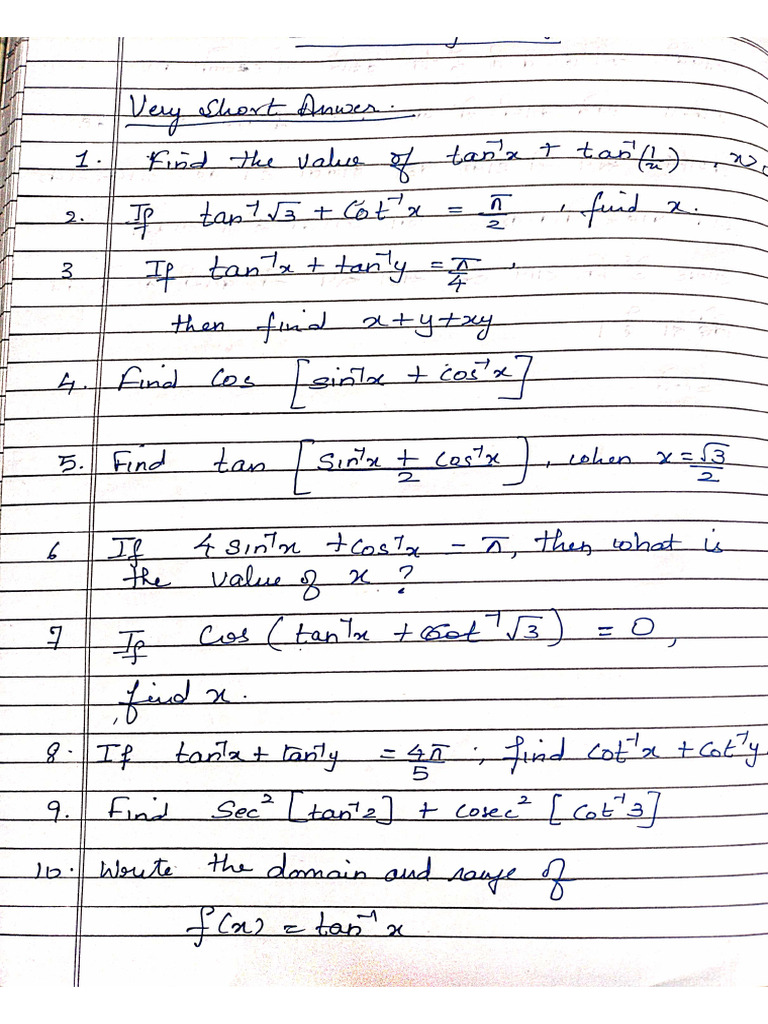 Very Short Answer.
1. Find the value of tan⁻¹x + tan⁻¹(1/x),
2. If tan⁻¹√3 + Cot⁻¹x = π/2, find x.
3 If tan⁻¹x + tan⁻¹y = π/4,
then find x+y+xy
4. Find cos [sin⁻¹x + cos⁻¹x]
5. Find tan [sin⁻¹x + cos⁻¹x / 2], when x = √3/2
6 If 4 sin⁻¹x + cos⁻¹x - π, then what is
the value of x ?
7 If Cos (tan⁻¹x + Cot⁻¹√3) = 0,
find x.
8. If tan⁻¹x + tan⁻¹y = 4π/5; find cot⁻¹x + cot⁻¹y
9. Find Sec² [tan⁻¹2] + cosec² [cot⁻¹3]
10. Write the domain and range of
f(x) = tan⁻¹x